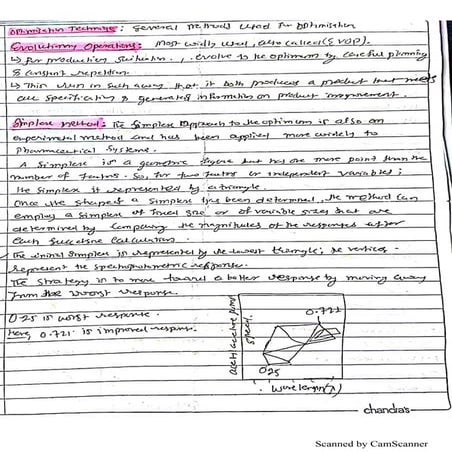 Optimisation Technique: Several Methods Used for Optimisation
Evolutionary Operations: Most widly used, also called (EVOP).
→ For production situation, evolve to the optimum by careful planning
& constant repetition.
→ This run in such away that it both produces a product that meets
all specification & generated information on product improvement.
Simplex method: The Simplex Approach to the optimum is also an
experimental method and has been applied more widely to
pharmaceutical systems.
A Simplex is a geometric figure that has one more point than the
number of factors. So, for two factors or independent variables;
the Simplex is represented by a triangle.
Once the shape of a Simplex has been determined, the method can
employ a Simplex of fixed size or of variable sizes that are
determined by comparing the magnitudes of the responses after
each successive calculation.
The initial Simplex is represented by the lowest triangle; the vertices
represent the spectrophotometric response.
The strategy is to move toward a better response by moving away
from the worst response.
0.25 is worst response.
here, 0.721 is improved response.
0.721
acetylacetone pump
speed
025
Wavelength (λ)
chandra's
Scanned by CamScanner